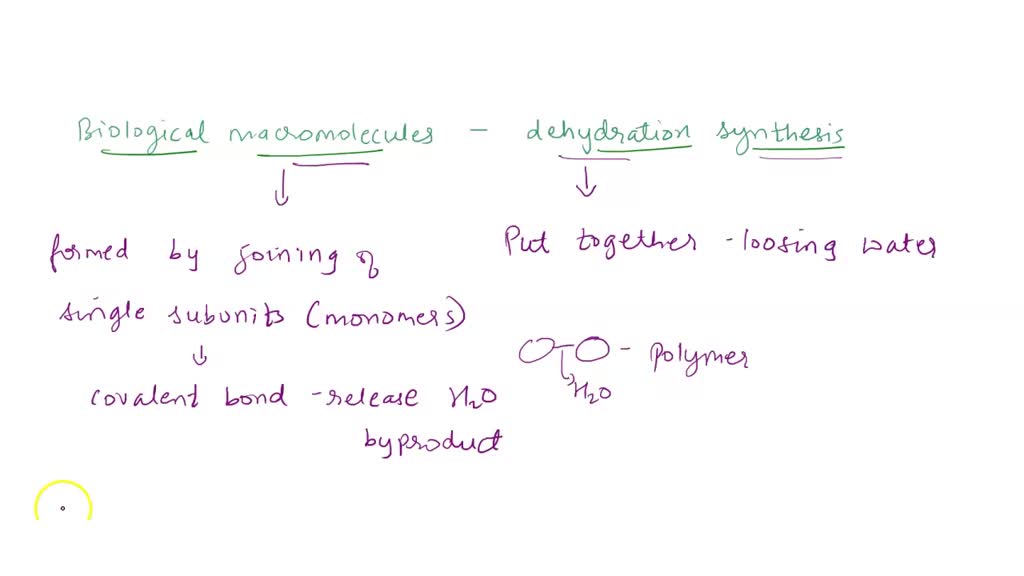 Biological macromolecules - dehydration synthesis
formed by joining of
single subunits (monomers)
covalent bond - release H₂O
byproduct
Put together - loosing water
- polymer
H₂O